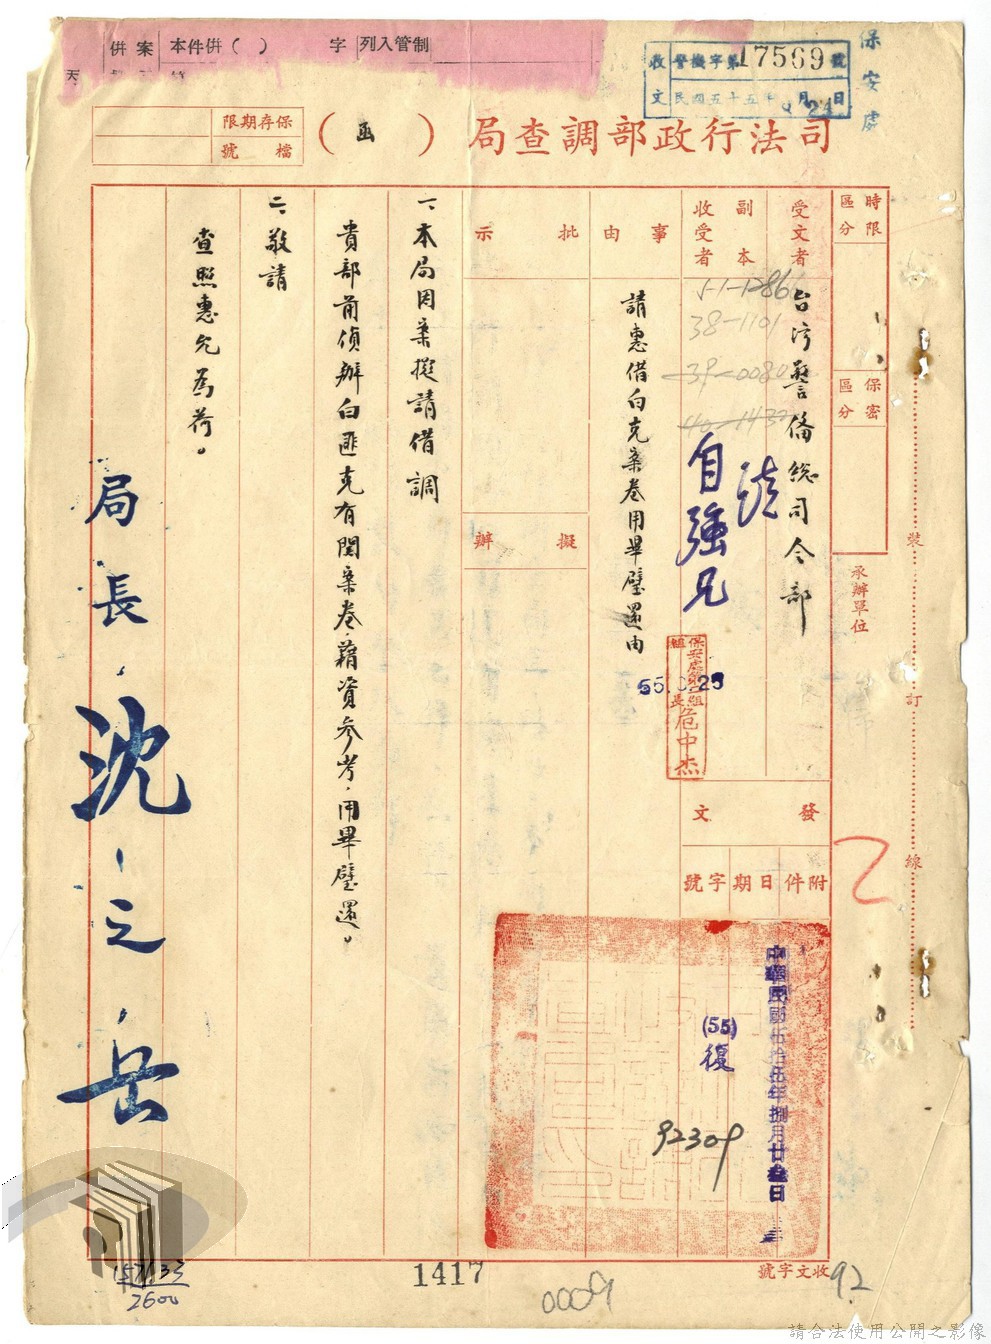 制管入列 字 ( )
併件本
案併
收文 警機字第17569號
民國五十五年 月24日
保安處
司法行政部調查局(函)
保存期限
檔號
時限區分
保密區分
受文者
台灣警備總司令部
副本收受者
5-1-1286
38-1101
39-0080
40-1437
自強兄
保安處第 組組長 危中杰
事由
請惠借白克案卷用畢璧還由
批示
擬辦
一、本局因案擬請借調
貴部前偵辦白匪克有關案卷,藉資參考,用畢璧還。
二、敬請
查照惠允為荷。
局長 沈之岳
承辦單位
發文
附件
日期
字號
中華民國伍拾伍年捌月廿叁日
(55)復
92309
裝
訂
線
收文字號
92
1417
0009
2600
請合法使用公開之影像